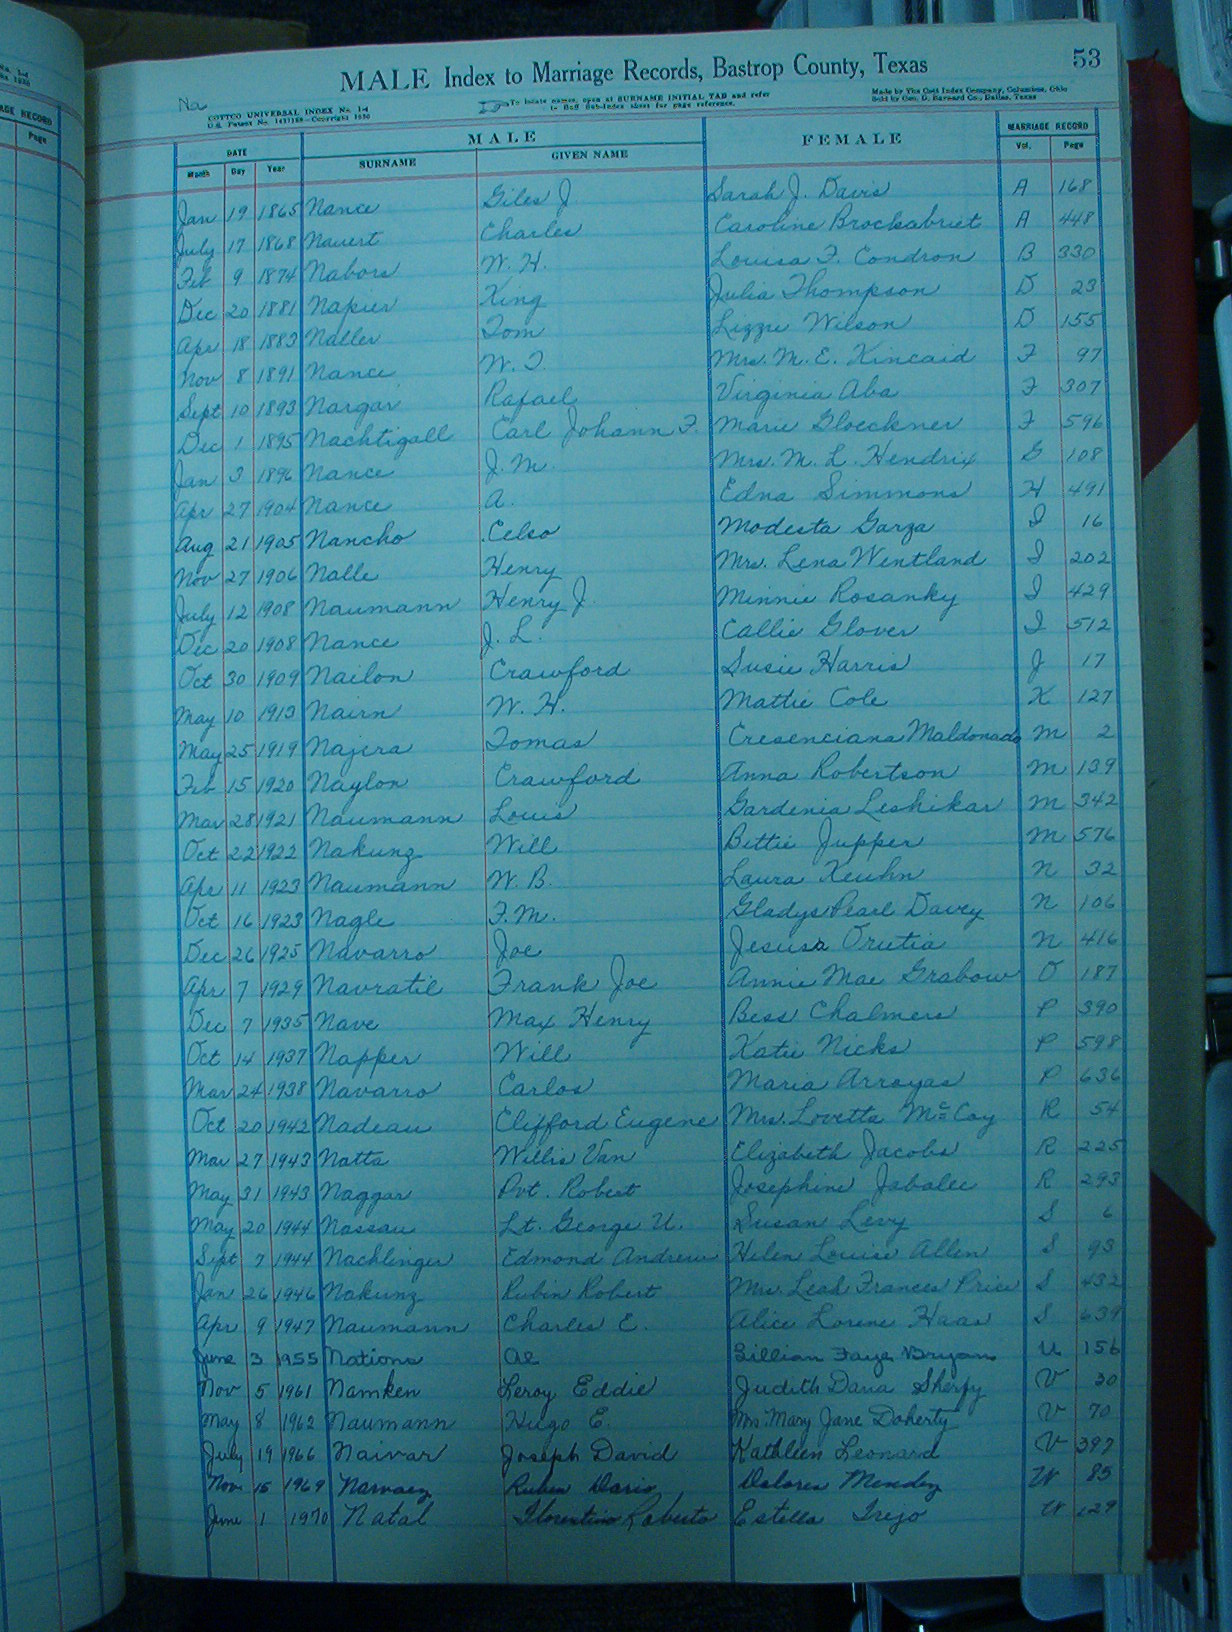 AGE RECORD
Page
53
MALE Index to Marriage Records, Bastrop County, Texas
Na
COTTCO UNIVERSAL INDEX No. 14
To locate names, open at SURNAME INITIAL TAB and refer
to Buff Sub-Index sheet for page reference.
Made by The Cott Index Company, Columbus, Ohio
Sold by Geo. D. Barnard Co., Dallas, Texas
DATE MALE FEMALE MARRIAGE RECORD
Month Day Year SURNAME GIVEN NAME Vol. Page
Jan 19 1865 Nance Giles J Sarah J. Davis A 168
July 17 1868 Nauert Charles Caroline Brocksabriet A 448
Feb 9 1874 Nabors W. H. Louisa F. Condron B 330
Dec 20 1881 Napier King Julia Thompson D 23
Apr 18 1883 Naller Tom Lizzie Wilson D 155
Nov 8 1891 Nance W. T. Mrs. M. E. Kincaid F 97
Sept 10 1893 Nargar Rafael Virginia Aba F 307
Dec 1 1895 Nachtigall Carl Johann F. Marie Gloeckner F 596
Jan 3 1896 Nance J. M. Mrs. M. L. Hendrix G 108
Apr 27 1904 Nance A. Edna Simmons H 491
Aug 21 1905 Nancho Celso Modesta Garza I 16
Nov 27 1906 Nalle Henry Mrs. Lena Wentland I 202
July 12 1908 Naumann Henry J. Minnie Rosanky I 429
Dec 20 1908 Nance J. L. Callie Glover I 512
Oct 30 1909 Nailon Crawford Susie Harris J 17
May 10 1913 Nairn W. H. Mattie Cole K 127
May 25 1919 Najera Tomas Cresenciana Maldonado M 2
Feb 15 1920 Naylon Crawford Anna Robertson M 139
Mar 28 1921 Naumann Louis Gardenia Leshikar M 342
Oct 22 1922 Nakunz Will Bettie Jupper M 576
Apr 11 1923 Naumann W. B. Laura Keuhn N 32
Oct 16 1923 Nagle F. M. Gladys Pearl Davey N 106
Dec 26 1925 Navarro Joe Jesusa Orutia N 416
Apr 7 1929 Navratil Frank Joe Annie Mae Grabow O 187
Dec 7 1935 Nave Max Henry Bess Chalmers P 390
Oct 14 1937 Napper Will Katie Nicks P 598
Mar 24 1938 Navarro Carlos Maria Arroyas P 636
Oct 20 1942 Nadeau Clifford Eugene Mrs. Lovetta McCoy R 54
Mar 27 1943 Natts Willis Van Elizabeth Jacobs R 225
May 31 1943 Naggar Pvt. Robert Josephine Jabalee R 293
May 20 1944 Nassau Lt. George U. Susan Levy S 6
Sept 7 1944 Nachlinger Edmond Andrew Helen Louise Allen S 93
Jan 26 1946 Nakunz Rubin Robert Mrs. Leah Frances Price S 432
Apr 9 1947 Naumann Charles E. Alice Lorene Haas S 639
June 3 1955 Nations Al Lillian Faye Bryan U 156
Nov 5 1961 Namken Leroy Eddie Judith Dana Sherpy V 30
May 8 1962 Naumann Hugo E. Mrs. Mary Jane Doherty V 70
July 19 1966 Naivar Joseph David Kathleen Leonard V 397
Nov 15 1969 Narvaez Ruben Dario Dolores Mendez W 85
June 1 1970 Natal Florentino Roberto Estella Trejo W 129